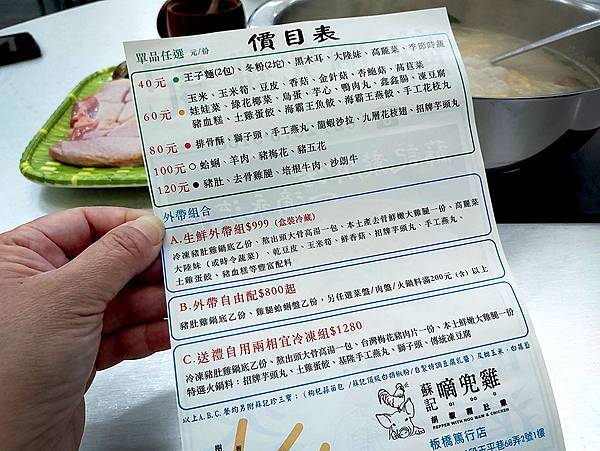 價目表
單品任選 元/份
40元 王子麵(2包)、冬粉(2坨)、黑木耳、大陸妹、高麗菜、季節時蔬
60元 玉米、玉米筍、豆皮、香菇、金針菇、杏鮑菇、萵苣菜
娃娃菜、綠花椰菜、鳥蛋、芋心、鴨肉丸、鑫鑫腸、凍豆腐
豬血糕、土雞蛋餃、海霸王魚餃、海霸王燕餃、手工花枝丸
80元 排骨酥、獅子頭、手工燕丸、龍蝦沙拉、九層花枝翅、招牌芋頭丸
100元 蛤蜊、羊肉、豬梅花、豬五花
120元 豬肚、去骨雞腿、培根牛肉、沙朗牛
外帶組合
A.生鮮外帶組$999 (盒裝冷藏)
冷凍豬肚雞鍋底乙份、熬出頭大骨高湯一包、本土產去骨鮮嫩大雞腿一份、高麗菜
大陸妹（或時令蔬菜）、乾豆皮、玉米筍、鮮香菇、招牌芋頭丸、手工燕丸、
土雞蛋餃、豬血糕等豐富配料
B.外帶自由配$800起
豬肚雞鍋底乙份、雞腿蛤蜊盤乙份，另任選菜盤/肉盤/火鍋料滿200元（含）以上
C.送禮自用兩相宜冷凍組$1280
冷凍豬肚雞鍋底乙份、熬出頭大骨高湯一包、台灣梅花豬肉片一份、本土鮮嫩大雞腿一份
特選火鍋料：招牌芋頭丸、土雞蛋餃、基隆手工燕丸、獅子頭、傳統凍豆腐
以上A.B.C.餐均另附蘇記珍三寶：（枸杞蒜苗包/蘇記頂級白胡椒粉/自製特調豆腐乳醬）及甜玉米、白蘿蔔
蘇記 嘀兜雞
DI DO G
胡椒豬肚雞
PEPPER WITH HOG MAW & CHICKEN
板橋篤行店
平巷68弄2號1樓